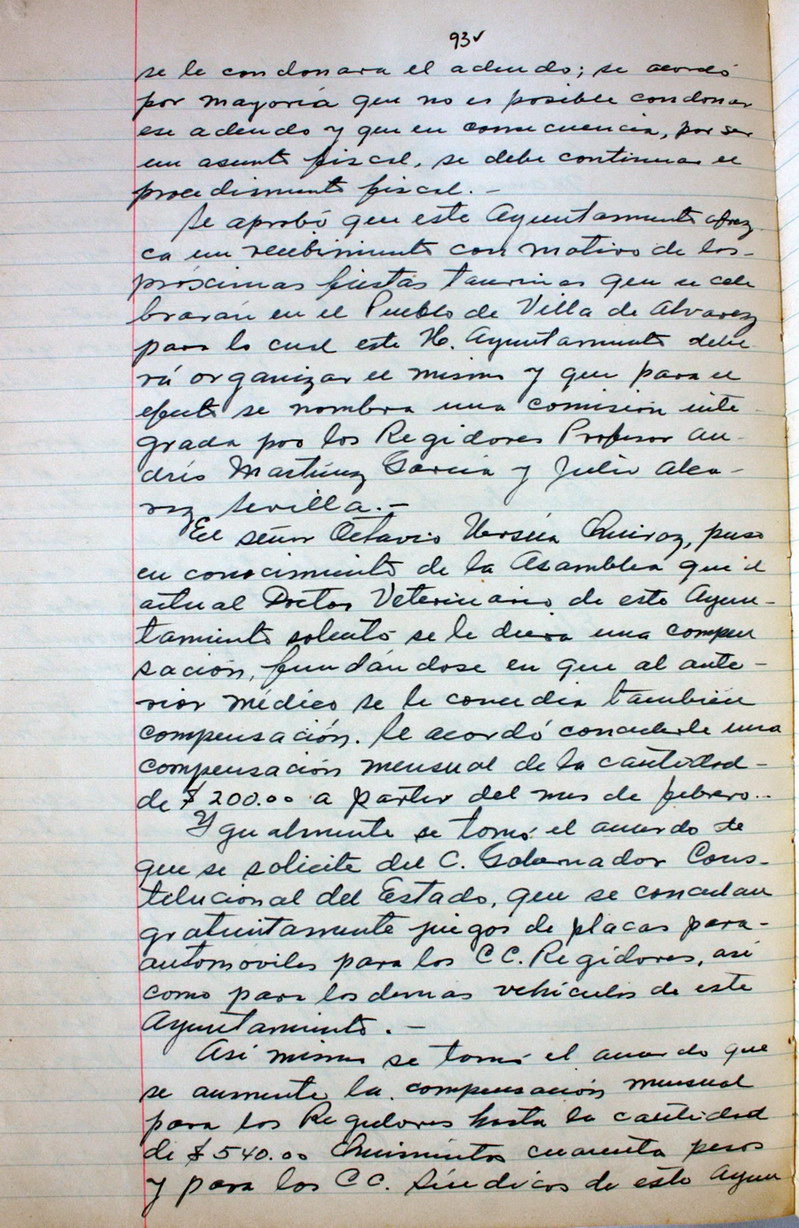 93v
se le condonara el adeudo; se acordó
por mayoría que no es posible condonar
ese adeudo y que en consecuencia, por ser
un asunto fiscal, se debe continuar el
procedimiento fiscal.-
Se aprobó que este Ayuntamiento ofrez-
ca un recibimiento con motivo de las-
próximas fiestas taurinas que se cele
brarán en el Pueblo de Villa de Alvarez
para lo cual este H. Ayuntamiento debe
rá organizar el mismo y que para el
efecto se nombra una comisión inte-
grada por los Regidores Profesor An-
drés Martínez García y Julio Alca-
raz Sevilla.-
El señor Octavio Ursúa Quiroz, puso
en conocimiento de la Asamblea que el
actual Doctor Veterinario de este Ayun-
tamiento solicitó se le diera una compen
sación, fundándose en que al ante-
rior médico se le concedía también
compensación. Se acordó concederle una
compensación mensual de la cantidad-
de $200.00 a partir del mes de febrero.-
Ygualmente se tomó el acuerdo de
que se solicite del C. Gobernador Cons-
titucional del Estado, que se concedan
gratuitamente juegos de placas para-
automóviles para los CC. Regidores, así
como para los demas vehículos de este
Ayuntamiento.-
Así mismo se tomó el acuerdo que
se aumente la compensación mensual
para los Regidores hasta la cantidad
de $540.00 Quinientos cuarenta pesos
y para los CC. Síndicos de este Ayun